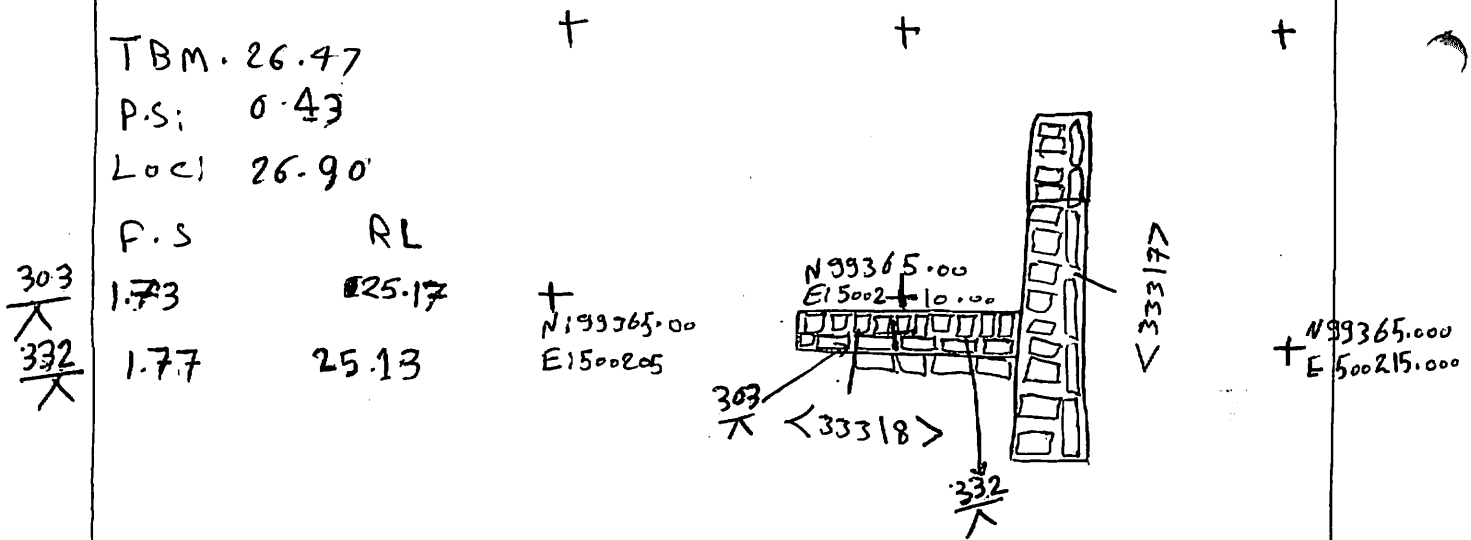 TBM. 26.47
P.S; 0.43
Locl 26.90
F.S RL
303 1.73 25.17
332 1.77 25.13
N:99365.00
E:500205
N99365.00
E:500210.00
<33317>
N99365.000
E 500215.000
303
<33318>
332